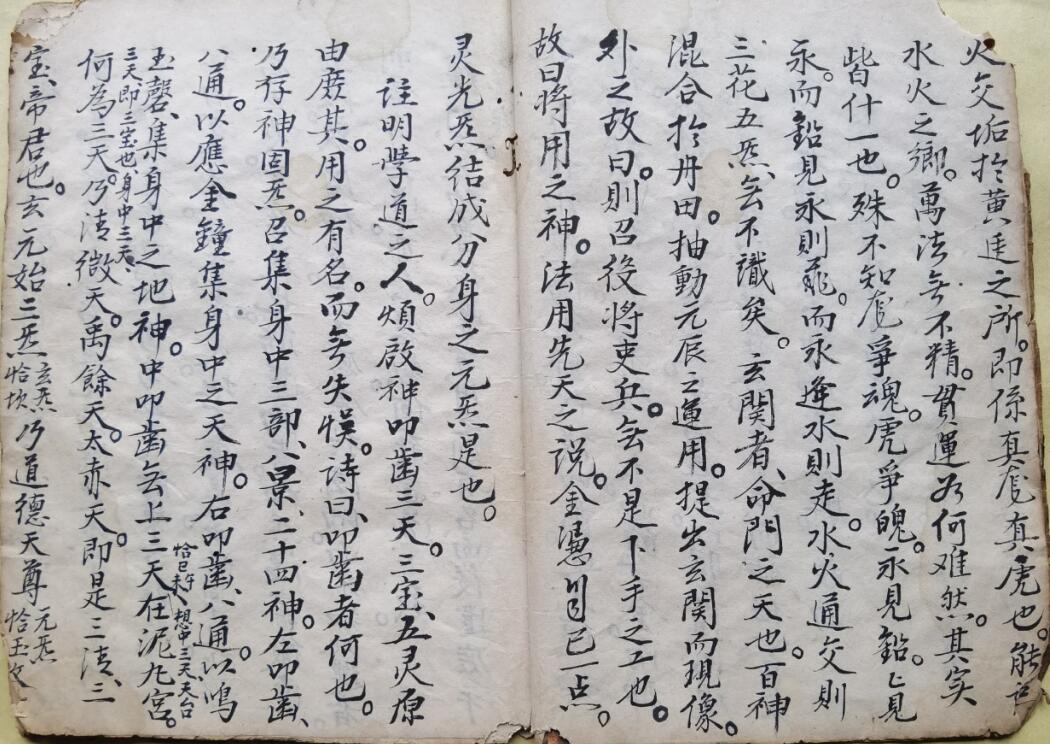 火交垢於黃𨓈之所。即係真虎真虎也。能
水火之鄉。萬法旡不精。貫運為何难然。其实
皆什一也。殊不知虎爭魂。虎爭魄。永見鉛。鉛見
永。而鉛見永則飛。而永逢水則走。水火通交則
三花五炁、旡不識矣。玄関者、命門之天也。百神
混合於丹田。抽動元辰之運用。提出玄関而現像。
外之故曰。則召役將吏兵。旡不是下手之工也。
故曰將用之神。法用先天之説。全憑自己一点。
灵光炁結成分身之元炁是也。
註明學道之人。煩啟神叩齒三天。三宝、五灵原
由廣其。用之有名。而旡失悮。诗曰、叩齒者何也。
乃存神固炁。召集身中三部、八景、二十四神。左叩齒、
八通。以應金鐘集身中之天神。右叩齒、八通。以鸣
玉磬、集身中之地神。中叩齒旡上三天在泥九宮。
恰巳午未、想中三天天台
三天即三宝也身中三天、
何為三天。乃清微天。禹餘天。太赤天。即是三清、三
宝、帝君也。玄元始三炁玄炁恰坎乃道德天尊元炁恰玉文